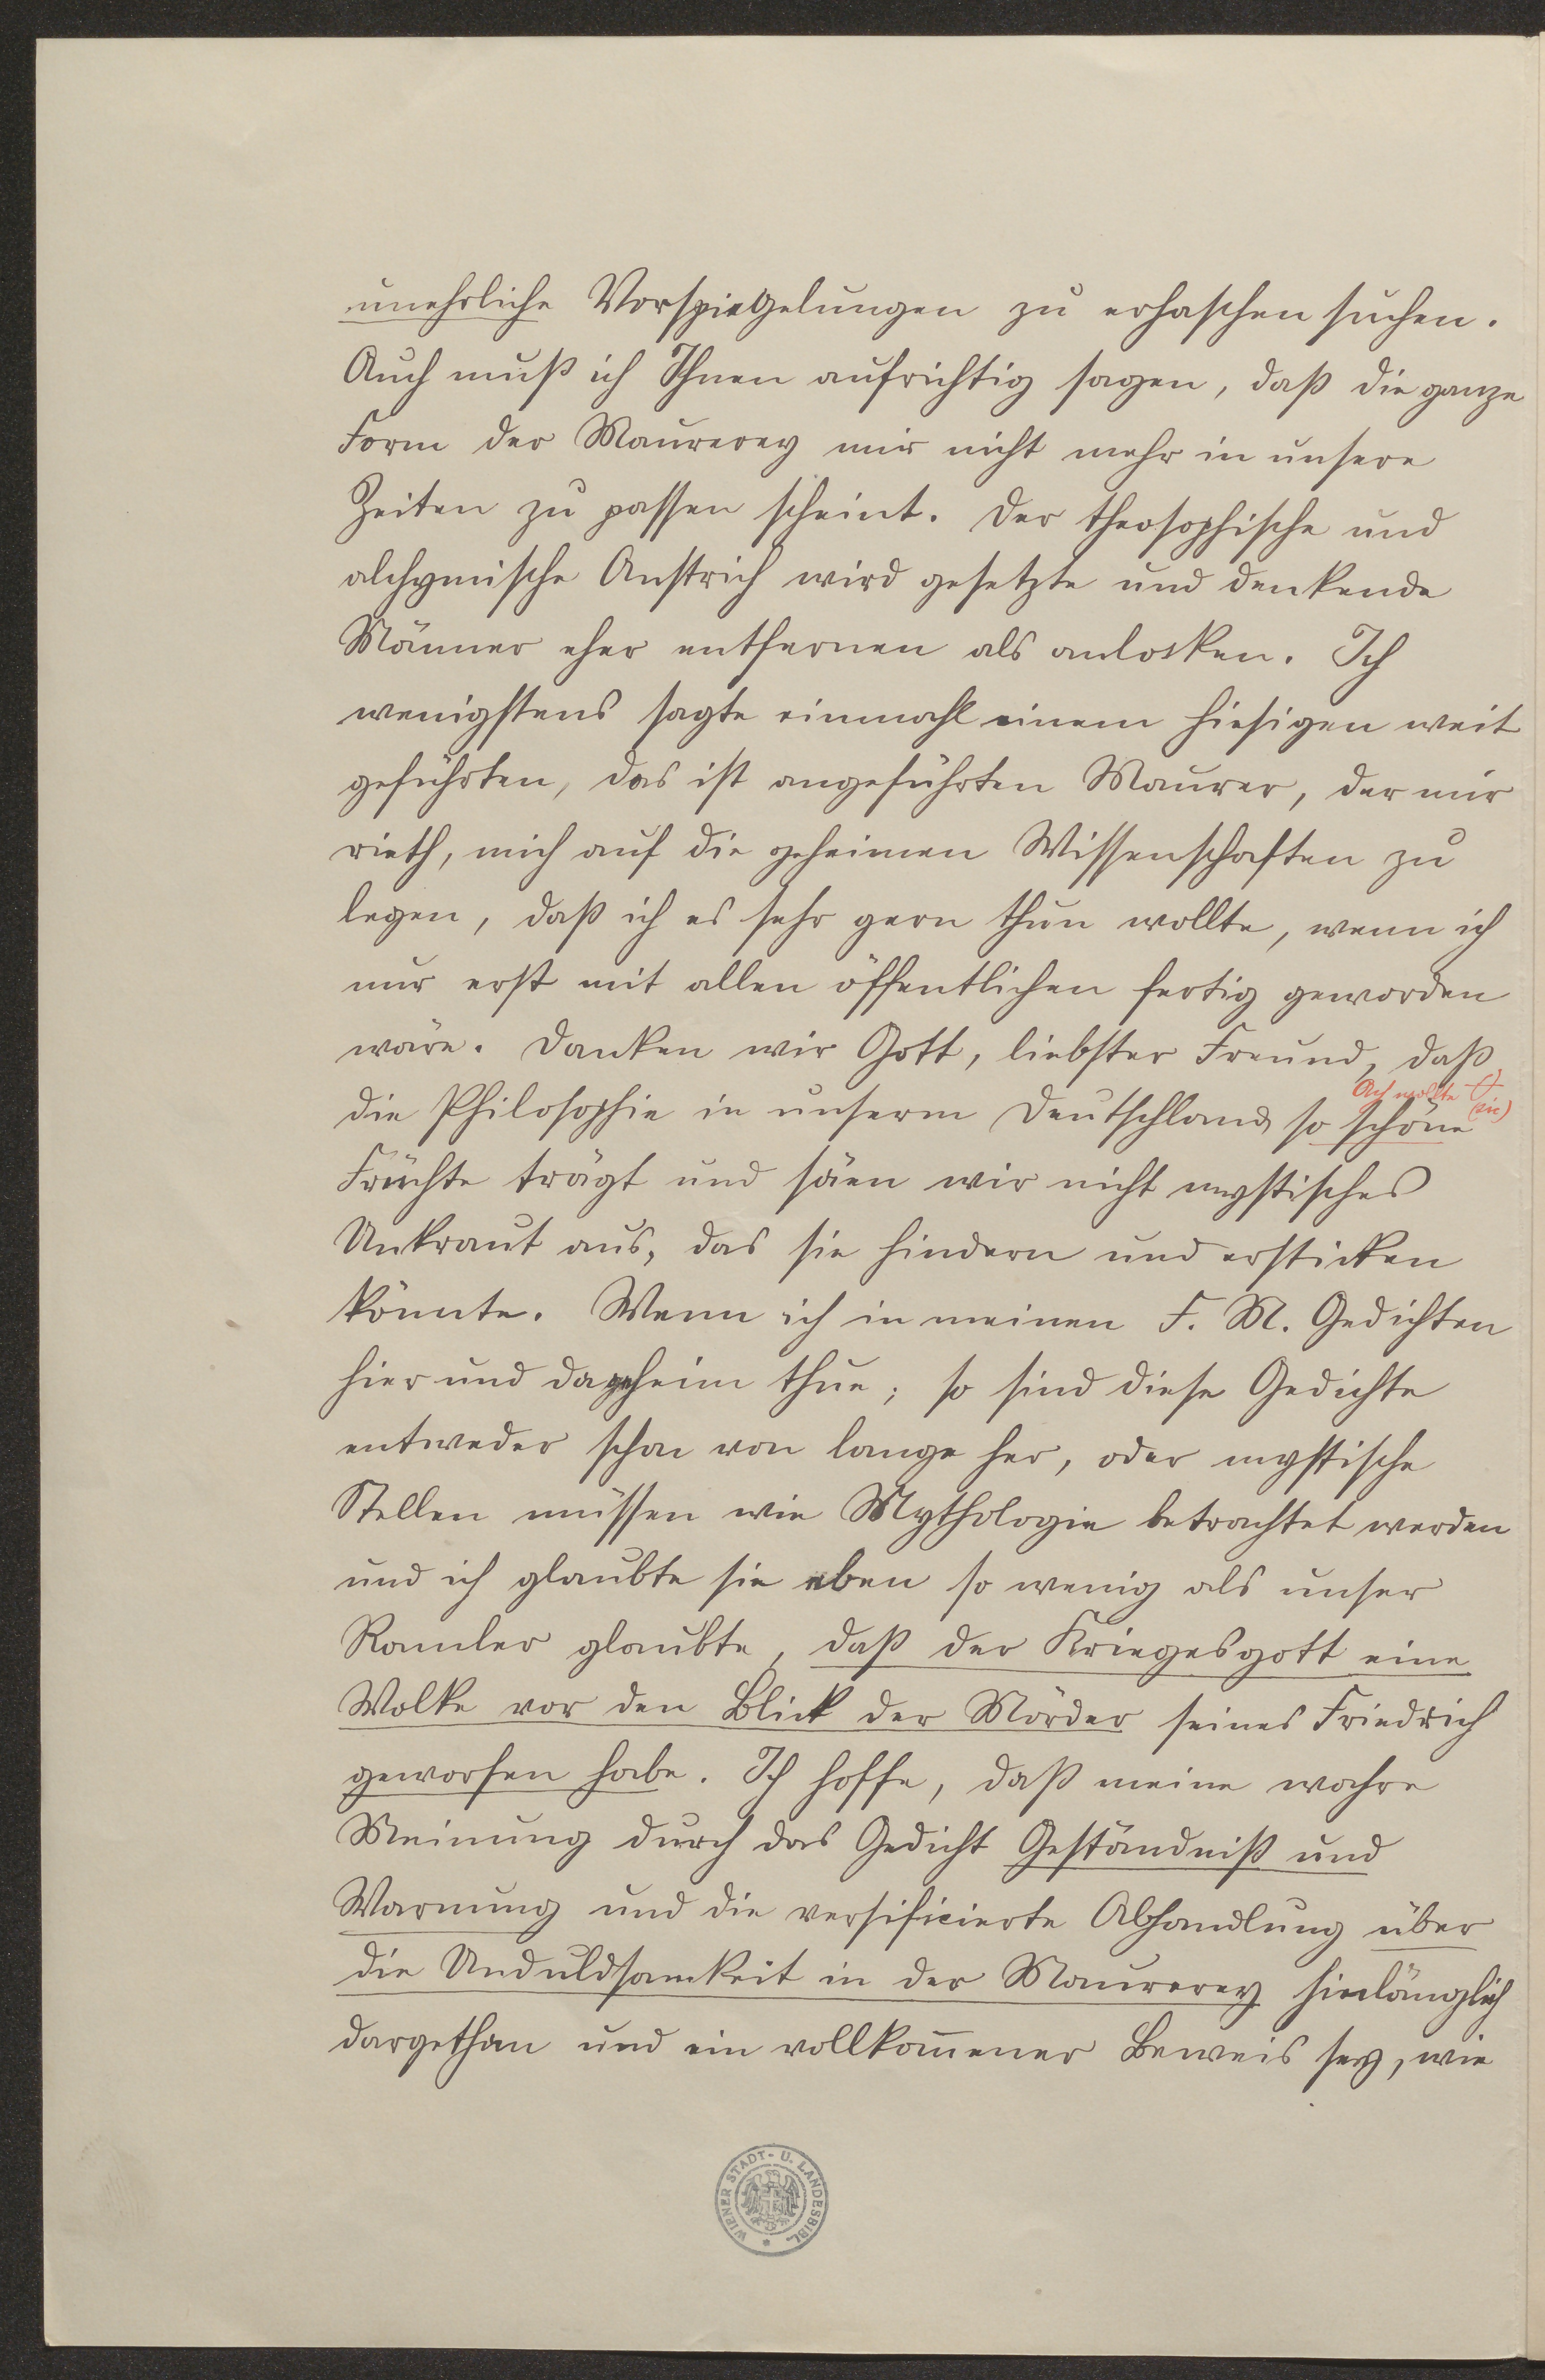 unehrliche Vorspiegelungen zu erhaschen suchen.
Auch muß ich Ihnen aufrichtig sagen, daß die ganze
Form der Maurerey mir nicht mehr in unsere
Zeiten zu passen scheint. Der theosophische und
alchymische Anstrich wird gesetzte und denkende
Männer eher entfernen als anlocken. Ich
wenigstens sagte einmahl einem hiesigen weit
geführten, das ist angeführten Maurer, der mir
rieth, mich auf die geheimen Wissenschaften zu
legen, daß ich es sehr gern thun wollte, wenn ich
nur erst mit allen öffentlichen fertig geworden
wäre. Danken wir Gott, liebster Freund, daß
die Philosophie in unserm Deutschland so schöne
Früchte trägt und säen wir nicht mystisches
Unkraut aus, das sie hindern und ersticken
könnte. Wenn ich in meinen F. M. Gedichten
hier und da geheim thue; so sind diese Gedichte
entweder schon von lange her, oder mystische
Stellen müssen wie Mythologie betrachtet werden
und ich glaubte sie eben so wenig als unser
Ramler glaubte, daß der Kriegesgott eine
Wolke vor den Blick der Mörder seines Friedrich
geworfen habe. Ich hoffe, daß meine wahre
Meinung durch das Gedicht Geständniß und
Warnung und die versificierte Abhandlung über
die Unduldsamkeit in der Maurerey hinlänglich
dargethan und ein vollkom̅ener Beweis sey, wie
WIENER STADT- U. LANDESBIBL.